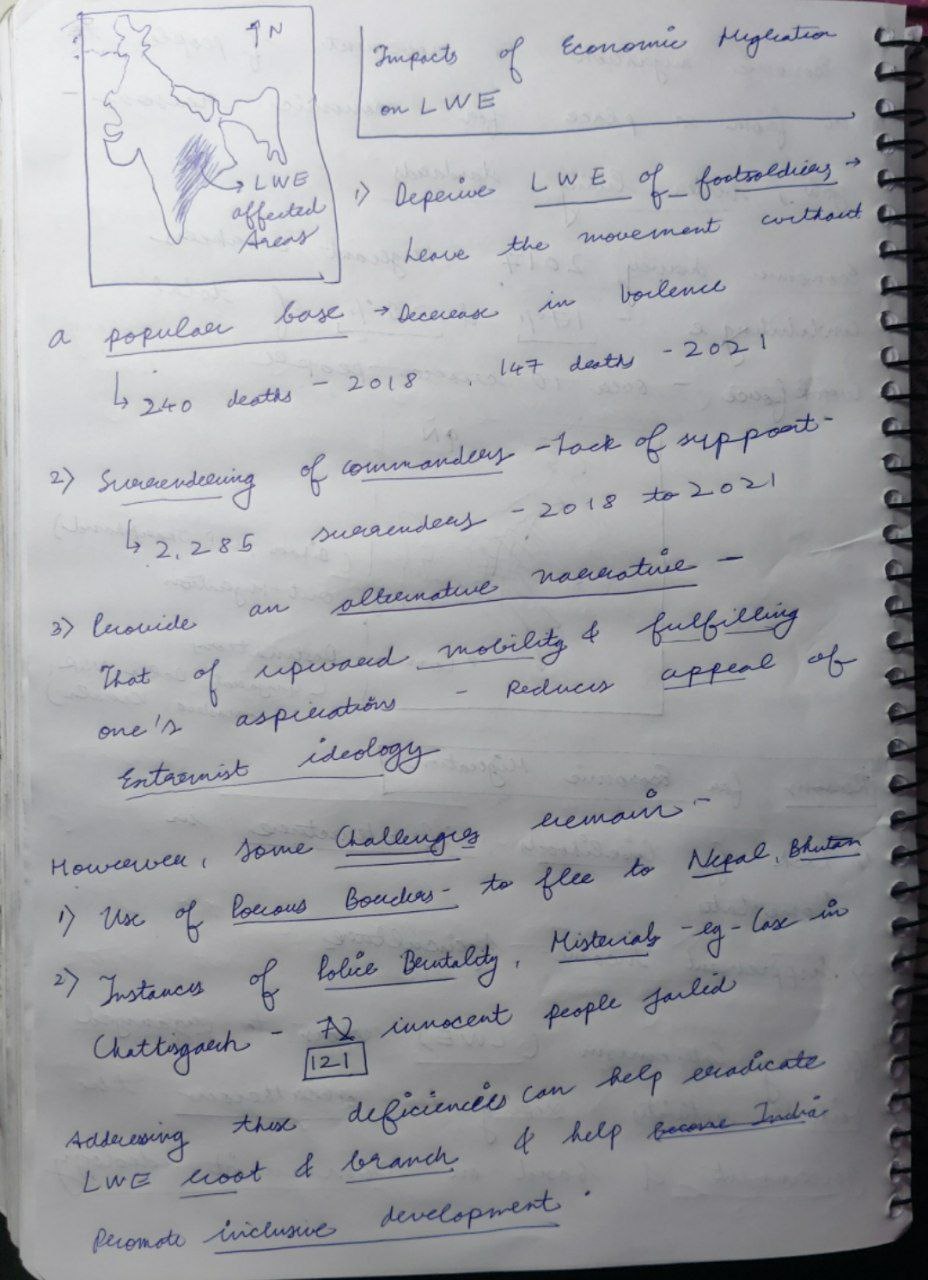 ↑N
Impacts of Economic Migration
on LWE
→ LWE
affected
Areas
1) Deperive LWE of footsoldiers →
Leave the movement without
a popular base → Decrease in voilence
↳ 240 deaths - 2018 . 147 deaths - 2021
2) Surrendering of commanders - Lack of support -
↳ 2,285 surrenders - 2018 to 2021
3) Provide an alternative narrative -
That of upward mobility & fulfilling
one's aspirations - Reduces appeal of
Extremist ideology
However, some Challenges remain -
1) Use of Porous Borders - to flee to Nepal, Bhutan
2) Instances of Police Brutality, Misterials - eg - Case in
Chattisgarh - innocent people jailed
121
Addressing these deficiencies can help eradicate
LWE root & branch & help become India
Promote inclusive development.